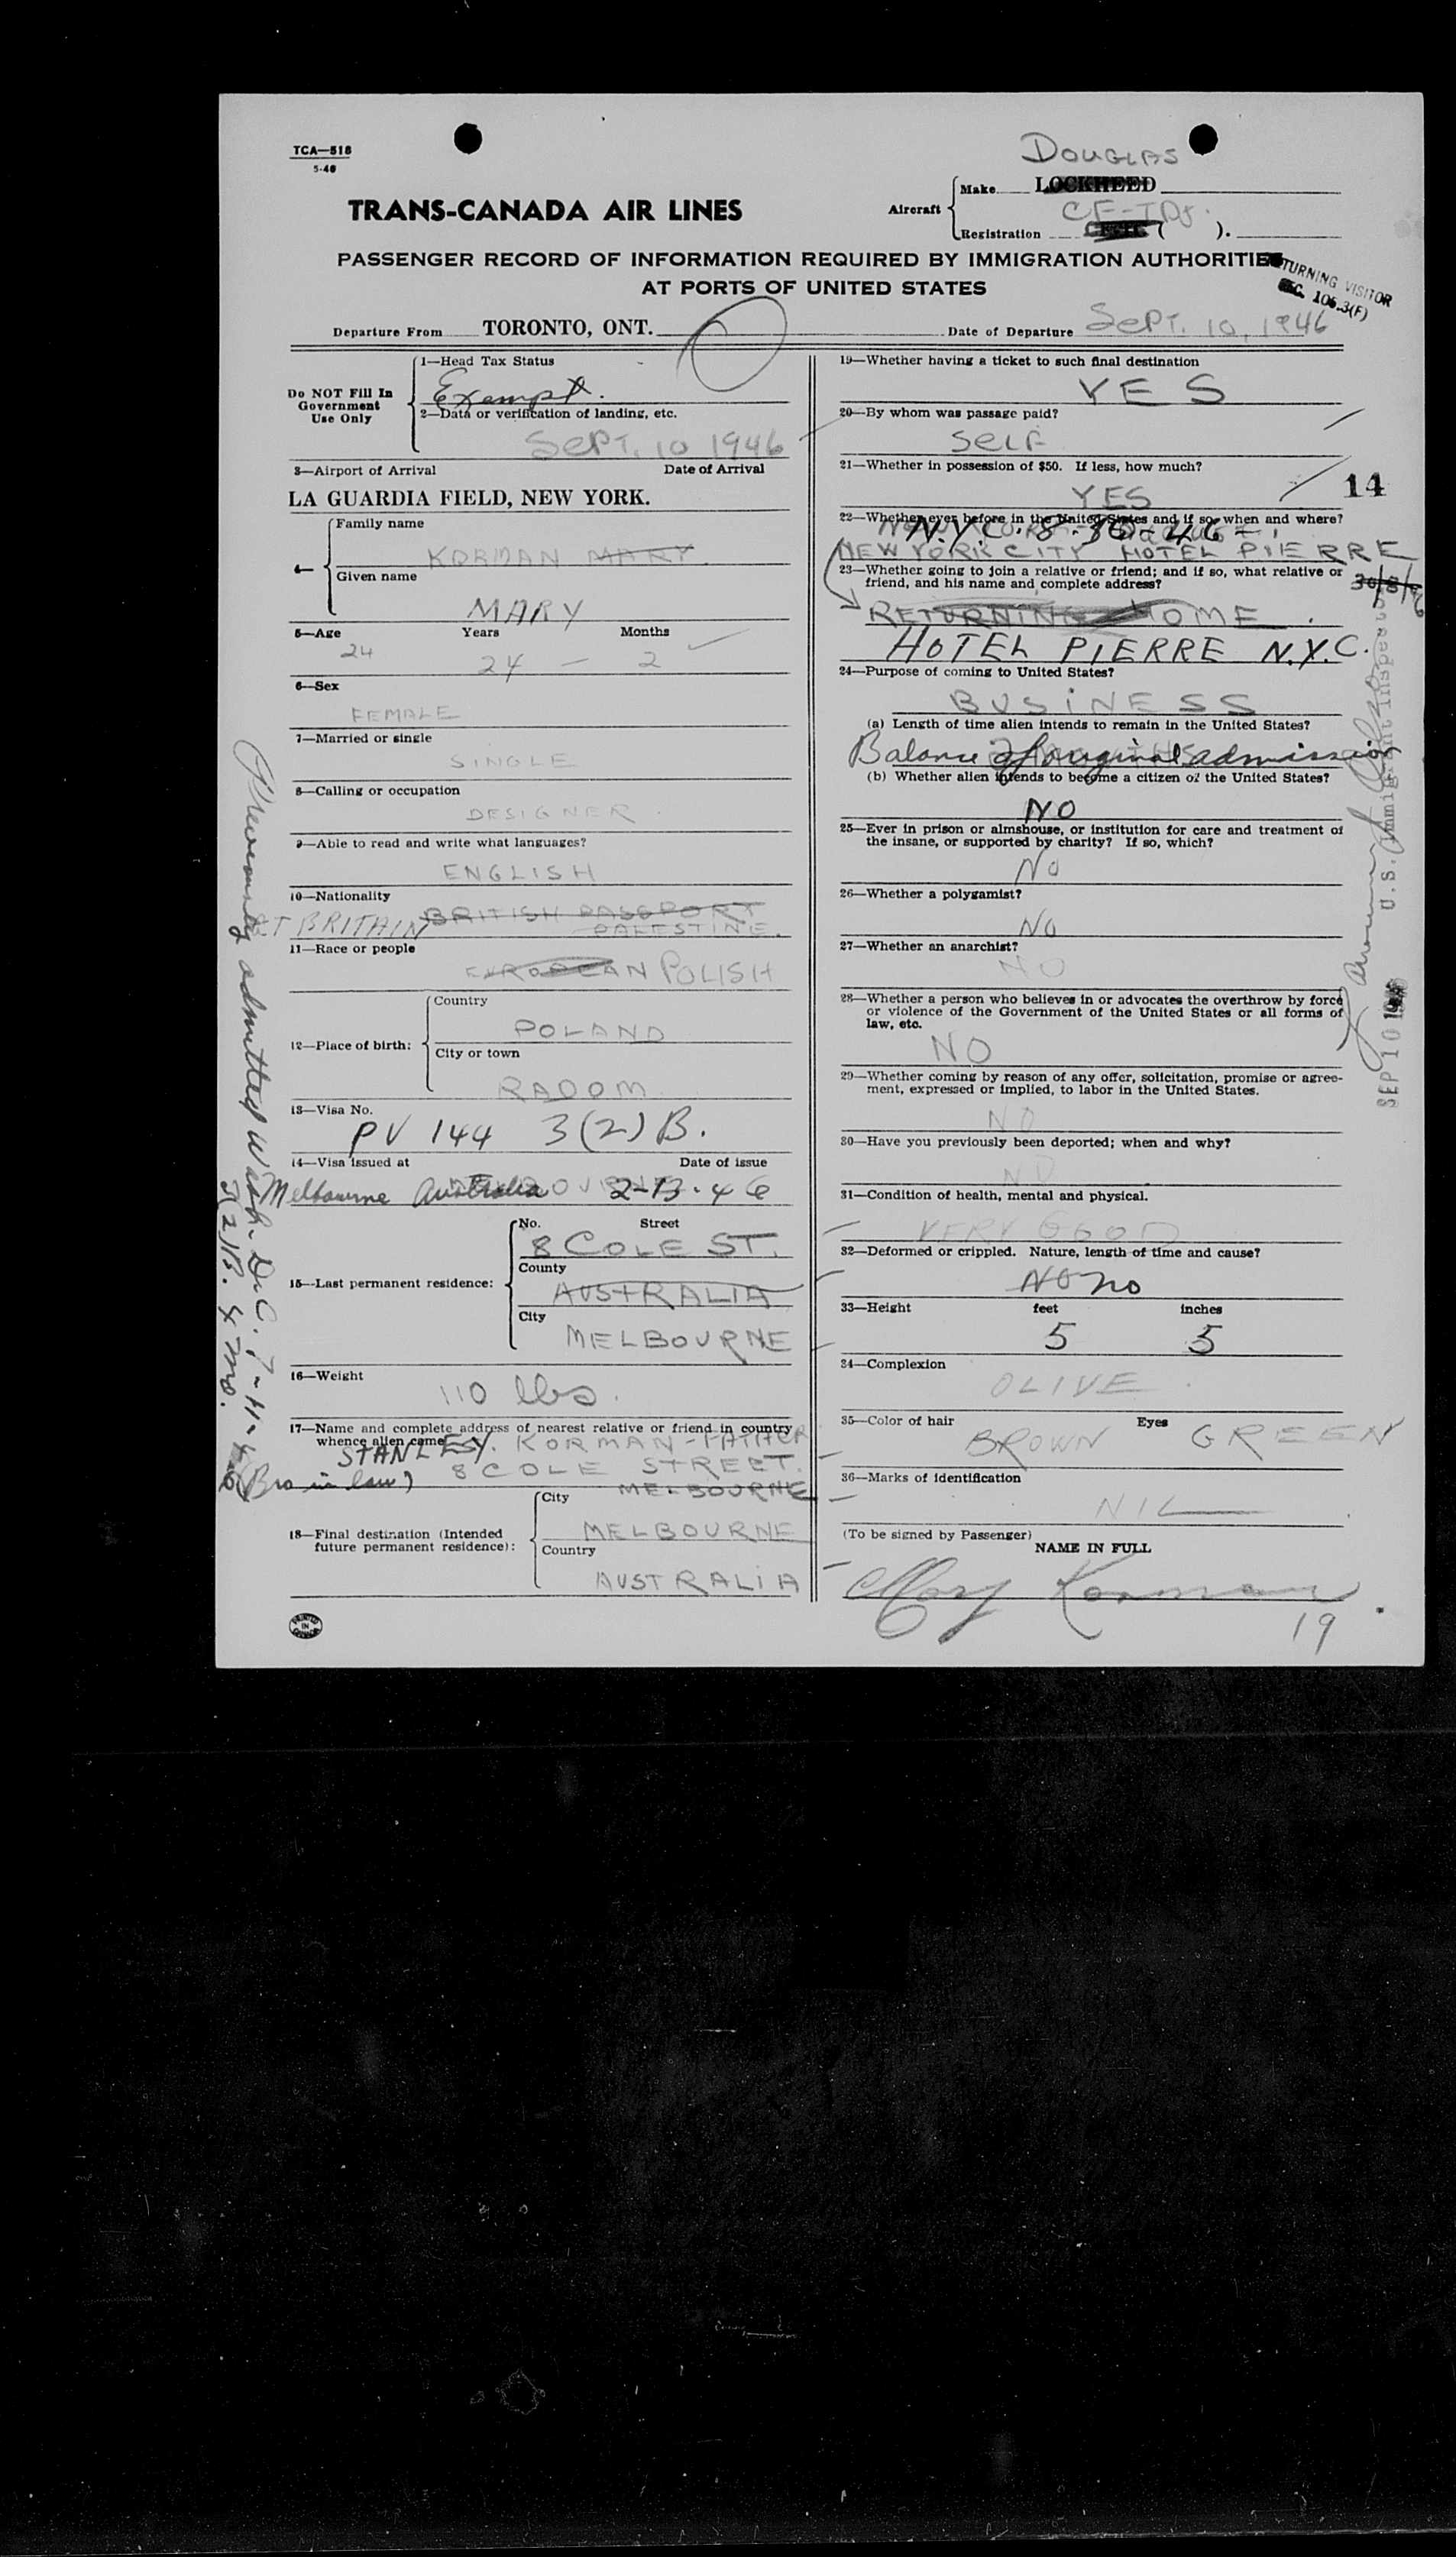 TCA—518
5-46
DOUGLAS
TRANS-CANADA AIR LINES
Aircraft
Make LOCKHEED
CF-TDJ.
Registration ( ).
PASSENGER RECORD OF INFORMATION REQUIRED BY IMMIGRATION AUTHORITIES
AT PORTS OF UNITED STATES
RETURNING VISITOR
SEC. 106.3(F)
Departure From TORONTO, ONT.
Date of Departure SEPT. 10, 1946
Do NOT Fill In
Government
Use Only
1—Head Tax Status
Exempt.
2—Data or verification of landing, etc.
SEPT. 10 1946
3—Airport of Arrival Date of Arrival
LA GUARDIA FIELD, NEW YORK.
4—
Family name
KORMAN MARY
Given name
MARY
5—Age Years Months
24 24 — 2
6—Sex
FEMALE
7—Married or single
SINGLE
8—Calling or occupation
DESIGNER
9—Able to read and write what languages?
ENGLISH
10—Nationality
GT BRITAIN BRITISH PASSPORT
PALESTINE.
11—Race or people
EUROPEAN POLISH
12—Place of birth:
Country
POLAND
City or town
RADOM
13—Visa No.
PV 144 3(2)B.
14—Visa issued at Date of issue
Melbourne Australia 2-13-46
15—Last permanent residence:
No. Street
8 COLE ST.
County
AUSTRALIA
City
MELBOURNE
16—Weight
110 lbs.
17—Name and complete address of nearest relative or friend in country
whence alien came
STANLEY. KORMAN-FATHER
8 COLE STREET.
(Bro in law) MELBOURNE
18—Final destination (Intended
future permanent residence):
City
MELBOURNE
Country
AUSTRALIA
PRINTED
IN
CANADA
Previously admitted Wash. D.C. 7-11-46
3(2)B. 4 mo.
19—Whether having a ticket to such final destination
YES
20—By whom was passage paid?
SELF
21—Whether in possession of $50. If less, how much?
YES
14
22—Whether ever before in the United States and if so, when and where?
N.Y.C. 8-30-46
NEW YORK CITY HOTEL PIERRE
30/8/46
23—Whether going to join a relative or friend; and if so, what relative or
friend, and his name and complete address?
RETURNING HOME
HOTEL PIERRE N.Y.C.
24—Purpose of coming to United States?
BUSINESS
(a) Length of time alien intends to remain in the United States?
Balance of original admission
(b) Whether alien intends to become a citizen of the United States?
NO
25—Ever in prison or almshouse, or institution for care and treatment of
the insane, or supported by charity? If so, which?
NO
26—Whether a polygamist?
NO
27—Whether an anarchist?
NO
28—Whether a person who believes in or advocates the overthrow by force
or violence of the Government of the United States or all forms of
law, etc.
NO
29—Whether coming by reason of any offer, solicitation, promise or agree-
ment, expressed or implied, to labor in the United States.
NO
30—Have you previously been deported; when and why?
NO
31—Condition of health, mental and physical.
VERY GOOD
32—Deformed or crippled. Nature, length of time and cause?
NO no
33—Height feet inches
5 5
34—Complexion
OLIVE
35—Color of hair Eyes
BROWN GREEN
36—Marks of identification
NIL
(To be signed by Passenger)
NAME IN FULL
Mary Korman
19
U.S. Immigrant Inspector
SEP 10 1946